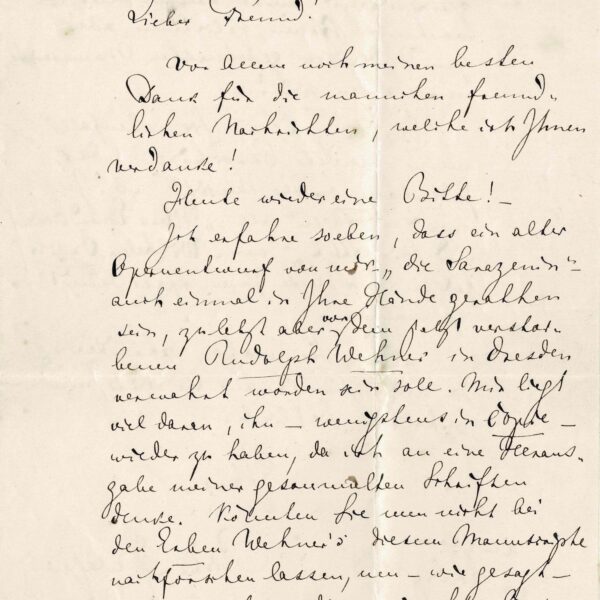 Lieber Freund!
Vor Allem noch meinen besten
Dank für die mannichen freund-
lichen Nachrichten, welche ich Ihnen
verdanke!
Heute wieder eine Bitte! –
Ich erfahre soeben, dass ein alter
Opernentwurf von mir – „die Sarazenin" –
auch einmal in Ihre Hände gerathen
sein, zuletzt aber von dem jetzt verstor-
benen Rudolph Wehner in Dresden
verwahrt worden sein solle. Mir liegt
viel daran, ihn – wenigstens in Copie –
wieder zu haben, da ich an eine Heraus-
gabe meiner gesammelten Schriften
denke. Könnten Sie nun nicht bei
den Erben Wehner's diesem Manuscripte
nachforschen lassen, um – wie gesagt –